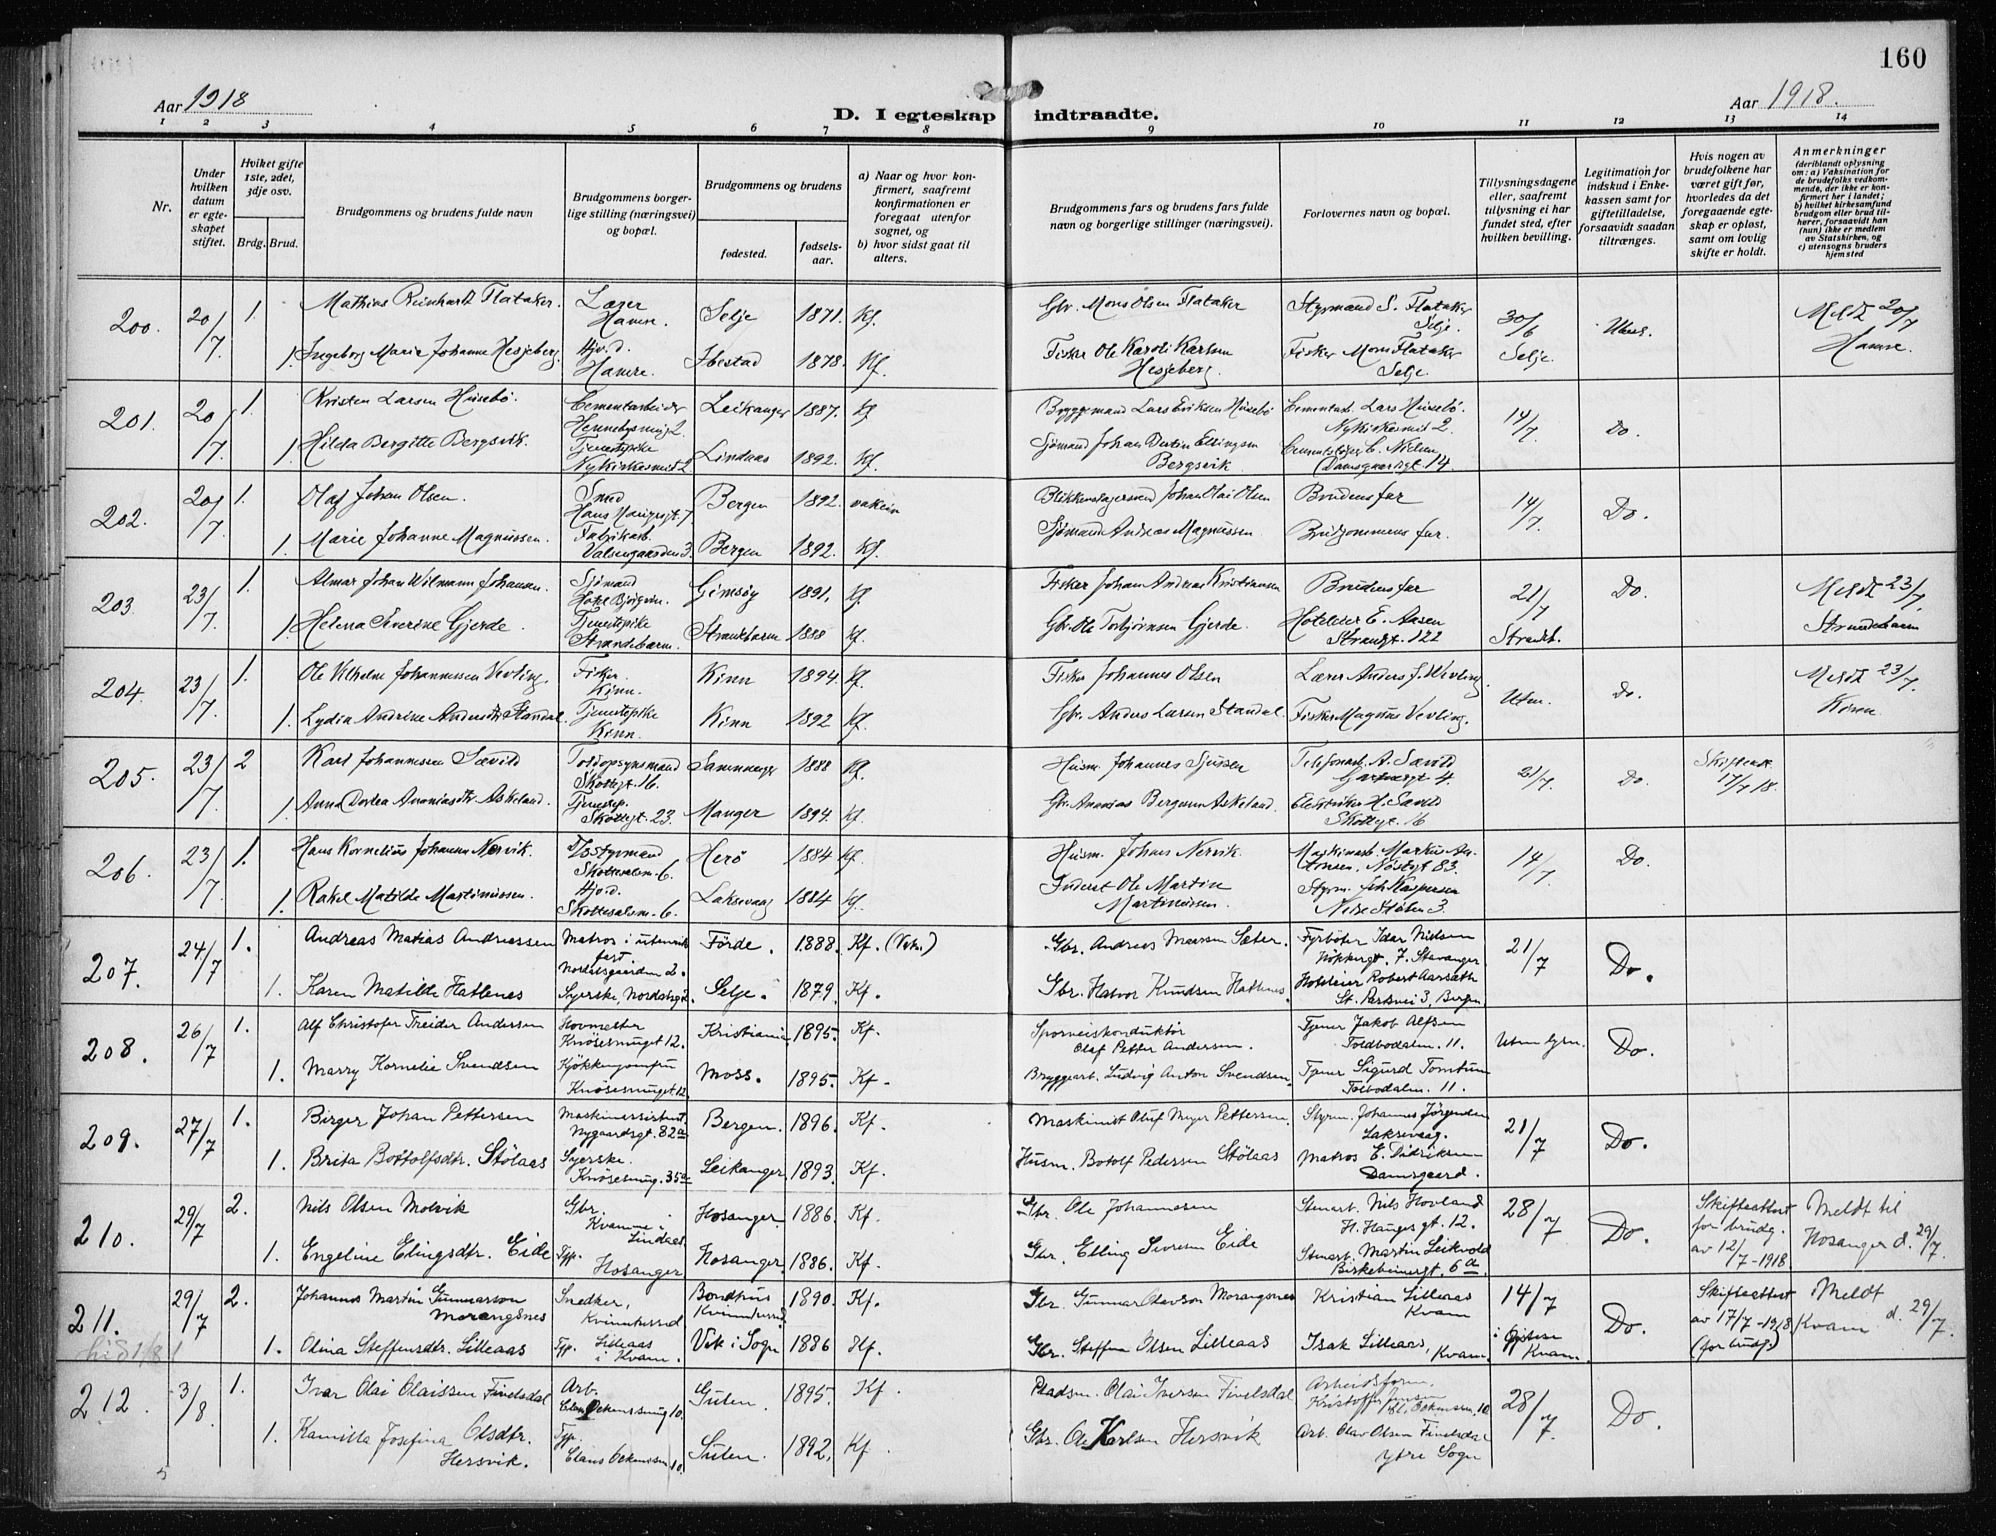 160
Aar 1918
Aar 1918.
D. I egteskap indtraadte.
1 2 3 4 5 6 7 8 9 10 11 12 13 14
Nr.
Under hvilken datum er egteskapet stiftet.
Hviket gifte 1ste, 2det, 3dje osv.
Brdg. Brud.
Brudgommens og brudens fulde navn
Brudgommens borgerlige stilling (næringsvei) og bopæl.
Brudgommens og brudens
fødested.
fødselsaar.
a) Naar og hvor konfirmert, saafremt konfirmationen er foregaat utenfor sognet, og
b) hvor sidst gaat til alters.
Brudgommens fars og brudens fars fulde navn og borgerlige stillinger (næringsvei).
Forlovernes navn og bopæl.
Tillysningsdagene eller, saafremt tillysning ei har fundet sted, efter hvilken bevilling.
Legitimation for indskud i Enkekassen samt for giftetilladelse, forsaavidt saadan tiltrænges.
Hvis nogen av brudefolkene har været gift før, hvorledes da det foregaaende egteskap er opløst, samt om lovlig skifte er holdt.
Anmerkninger (deriblandt oplysning om: a) Vaksination for de brudefolks vedkommende, der ikke er konfirmert her i landet; b) hvilket kirkesamfund brudgom eller brud tilhører, forsaavidt han (hun) ikke er medlem av Statskirken, og c) utensogns bruders hjemsted
200. 20/7 1. Mathias Reinhardt Flataker. Selje 1871. Kf. Gbr. Mons Olsen Flataker Styrmand S. Flataker Selje. 30/6 Selje. Meldt 20/7
1. Ingeborg Marie Johanne Hesjeberg. Ibestad 1878. Kf. Fisker Ole Karoli Karlsen Hesjeberg. Fisker Mons Flataker Selje.
201. 20/7 1. Kristen Larsen Husebö. Cementarbeider Leikanger 1887. Kf Bryggemand Lars Eriksen Husebö Cementarb. Lars Husebö. Nykirkesmit 2 14/7 Do.
1. Hilda Bergitte Bergsvik. Tjenestepike Nykirkesmit 2 Lindaas 1892. Kf. Sjømand Johan Martin Ellingsen Bergsvik C. Nielsen Damsgaardsgt. 14
202. 20/7 1. Olaf Johan Olsen. Smed Hans Haugesgt. 7 Bergen 1892. Johan Olai Olsen Brudens far 14/7. Do.
1. Marie Johanne Magnussen. Fabrikarb. Bergen 1892. Kf. Sjømand Andreas Magnussen Brudgommens far.
203. 23/7. 1. Almar Johan Wilmann Johansen. Sjømand Gimsöy 1891. Kf. Fisker Johan Andreas Kristiansen Brudens far 21/7 Strandb. Do. Meldt 23/7. Strandebarm
1. Helena Severine Gjerde. Tjenestepike Strandebarm. Strandebarm 1888 Kf. Gbr. Ole Torbjørnsen Gjerde. Hoteleier E. Aasen Strandgt. 122
204. 23/7 1. Ole Vilhelm Johannessen Vevling. Fisker. Kinn. Kinn 1894. Kf. Fisker Johannes Olsen Lærer Anders J. Vevling. Uten. Do. Meldt 23/7. Kinn
1. Lydia Andrine Andersdtr. Standal. Tjenestepike Kinn. Kinn 1892 Kf. Gbr. Anders Larsen Standal. Fisker Magnus Vevling.
205. 23/7 2 Karl Johannessen Sævild Toldopsynsmand Skottegt. 16. 1888 Kf. Husm. Johannes Sjursen Telefonarb. A. Sævild 21/7. Do. Skifteatt. 17/7 18.
1. Anna Dortea Ananiasdtr. Askeland. Tjenestep. Skottegt. 23. Manger 1894. Kf. Gbr. Ananias Bergesen Askeland. Elektriker H. Sævild Skottegt. 16
206. 23/7 1. Hans Kornelius Johansen Nervik. Skottesalm. 6. Herö 1884 Kf. Husm. Johans Nervik. Maskinarb. Nöstegt 83. 14/7. Do.
1. Rakel Matilde Martinussen. Hjv.d. Skottesalm. 6. Laksevaag 1884 Kf. Inderst Ole Martin Martinussen. Styrm. Joh. Kaspersen 3.
207. 24/7 1. Andreas Matias Andreassen Matros i utenriksfart Nordalsgaarden 2. Förde. 1888. Kf. Gbr. Andreas Sæter. Fyrbøter Idar Nielsen 7. Stavanger 21/7 Do.
1. Karen Matilde Hatlenes Syerske, Selje. 1879. Kf. Gbr. Halvor Knudsen Hatlenes. Hoteleier Robert Aarsæth St. Parkvei 3, Bergen
208. 26/7 1. Alf Christofer Treider Andersen Hovmester Knösesmuget 12. Kristiania 1895. Kf. Sporveiskonduktör Olaf Petter Andersen. Tjener Jakob Alfsen Toldbodalm. 11. Do.
1. Marry Kornelie Svendsen Kjökkenjomfru Knösesmuget 12. Moss. 1895. Kf. Bryggearb. Ludvig Anton Svendsen. Tjener Sigurd Tomtum Tolbodalm. 11.
209. 27/7 1. Birger Johan Pettersen Maskinassistent Nygaardsgt. 82a Bergen. 1896. Kf. Maskinist Oluf Meyer Pettersen. Styrm. Johannes Jørgensen Laksevaag. 21/7 Do.
1. Brita Bottolfsdtr. Stölaas Syerske. Knösesmug. 35a Leikanger 1893. Kf. Husm. Botolf Pedersen Stölaas Matros E. Didriksen Damsgaard.
210. 29/7 2. Nils Olsen Molvik Gbr. Kvamme i Lindaas. Hosanger 1886. Kf. Gbr. Ole Johannesen Stuart. Nils Hovland H. Hauges gt. 12. 28/7 Do. Skifteattest for brudg. av 12/7-1918 Meldt til Hosanger d. 29/7.
1. Engeline Elingsdtr. Eide Tjp. Hosanger Hosanger. 1886. Kf. Gbr. Elling Iversen Eide Stuart. Martin Leikvold Birkebeinergt. 6a.
211. 29/7 2. Johannes Martin Gunnarson Morangsnes Snedker, Kvinnherred Bondhus Kvinnherred 1890. Kf. Gbr. Gunnar Olavson Morangsnes Kristian Lilleaas Kvam 14/7 i Øistese Kvam. Do. Skifteattest av 17/7-1918 (for brudg.) Meldt Kvam d. 29/7.
1. Olina Steffensdtr. Lilleaas Tjp. Lilleaas i Kvam. Vik i Sogn 1886 Kf. Gbr. Steffen Olsen Lilleaas Isak Lilleaas, Kvam.
212 3/8 1. Ivar Olai Olaissen Finelsdal Arb. 10. Gulen. 1895. Kf. Pladsm. Olai Iversen Finelsdal Arbeidsform. Kristoffer Jensen 28/7. Do.
1. Kamilla Josefina Olsdtr. Hersvik. Tjp. 10. Sulen. 1892. Kf Gbr. Ole Karlsen Hersvik Arb. Olav Olsen Finelsdal Ytre Sogn